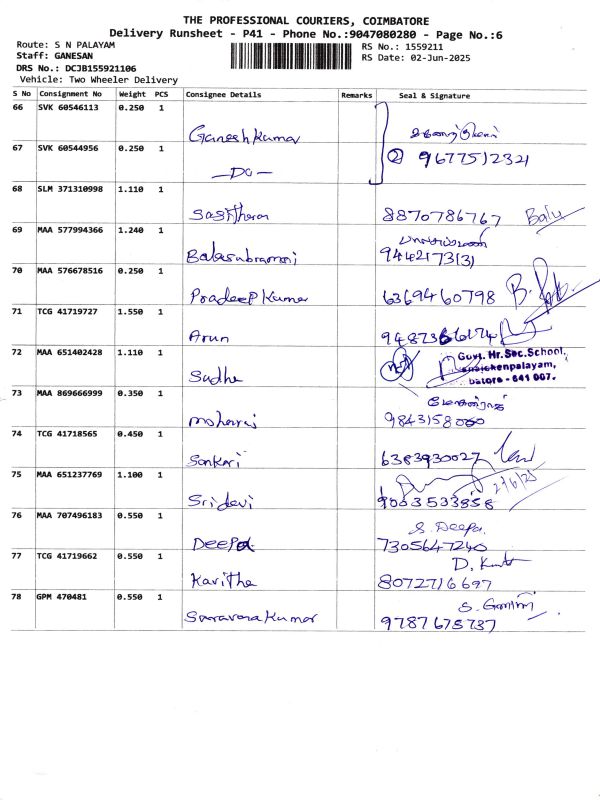 THE PROFESSIONAL COURIERS, COIMBATORE
Delivery Runsheet - P41 - Phone No.:9047080280 - Page No.:6
Route: S N PALAYAM
RS No.: 1559211
Staff: GANESAN
RS Date: 02-Jun-2025
DRS No.: DCJB155921106
Vehicle: Two Wheeler Delivery
S No Consignment No Weight PCS Consignee Details Remarks Seal & Signature
66 SVK 60546113 0.250 1
Ganeshkumar
67 SVK 60544956 0.250 1
② 9677512321
—DO—
68 SLM 371310998 1.110 1
8870786767 Balu
69 MAA 577994366 1.240 1
9442173131
70 MAA 576678516 0.250 1
PradeepKumar 6369460798
71 TCG 41719727 1.550 1
Arun
72 MAA 651402428 1.110 1
Govt. Hr. Sec. School,
Sudha
641 007.
73 MAA 869666999 0.350 1
74 TCG 41718565 0.450 1
Sankari 6383930027
75 MAA 651237769 1.100 1
2/6/25
Sridevi 9003533858
76 MAA 707496183 0.550 1
S. Deepa.
Deepa 7305647240
77 TCG 41719662 0.550 1
Kavitha 8072716697
78 GPM 470481 0.550 1
SaravanaKumar 9787675737